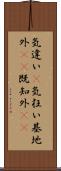 気違い 気狂い基地
外 既知外